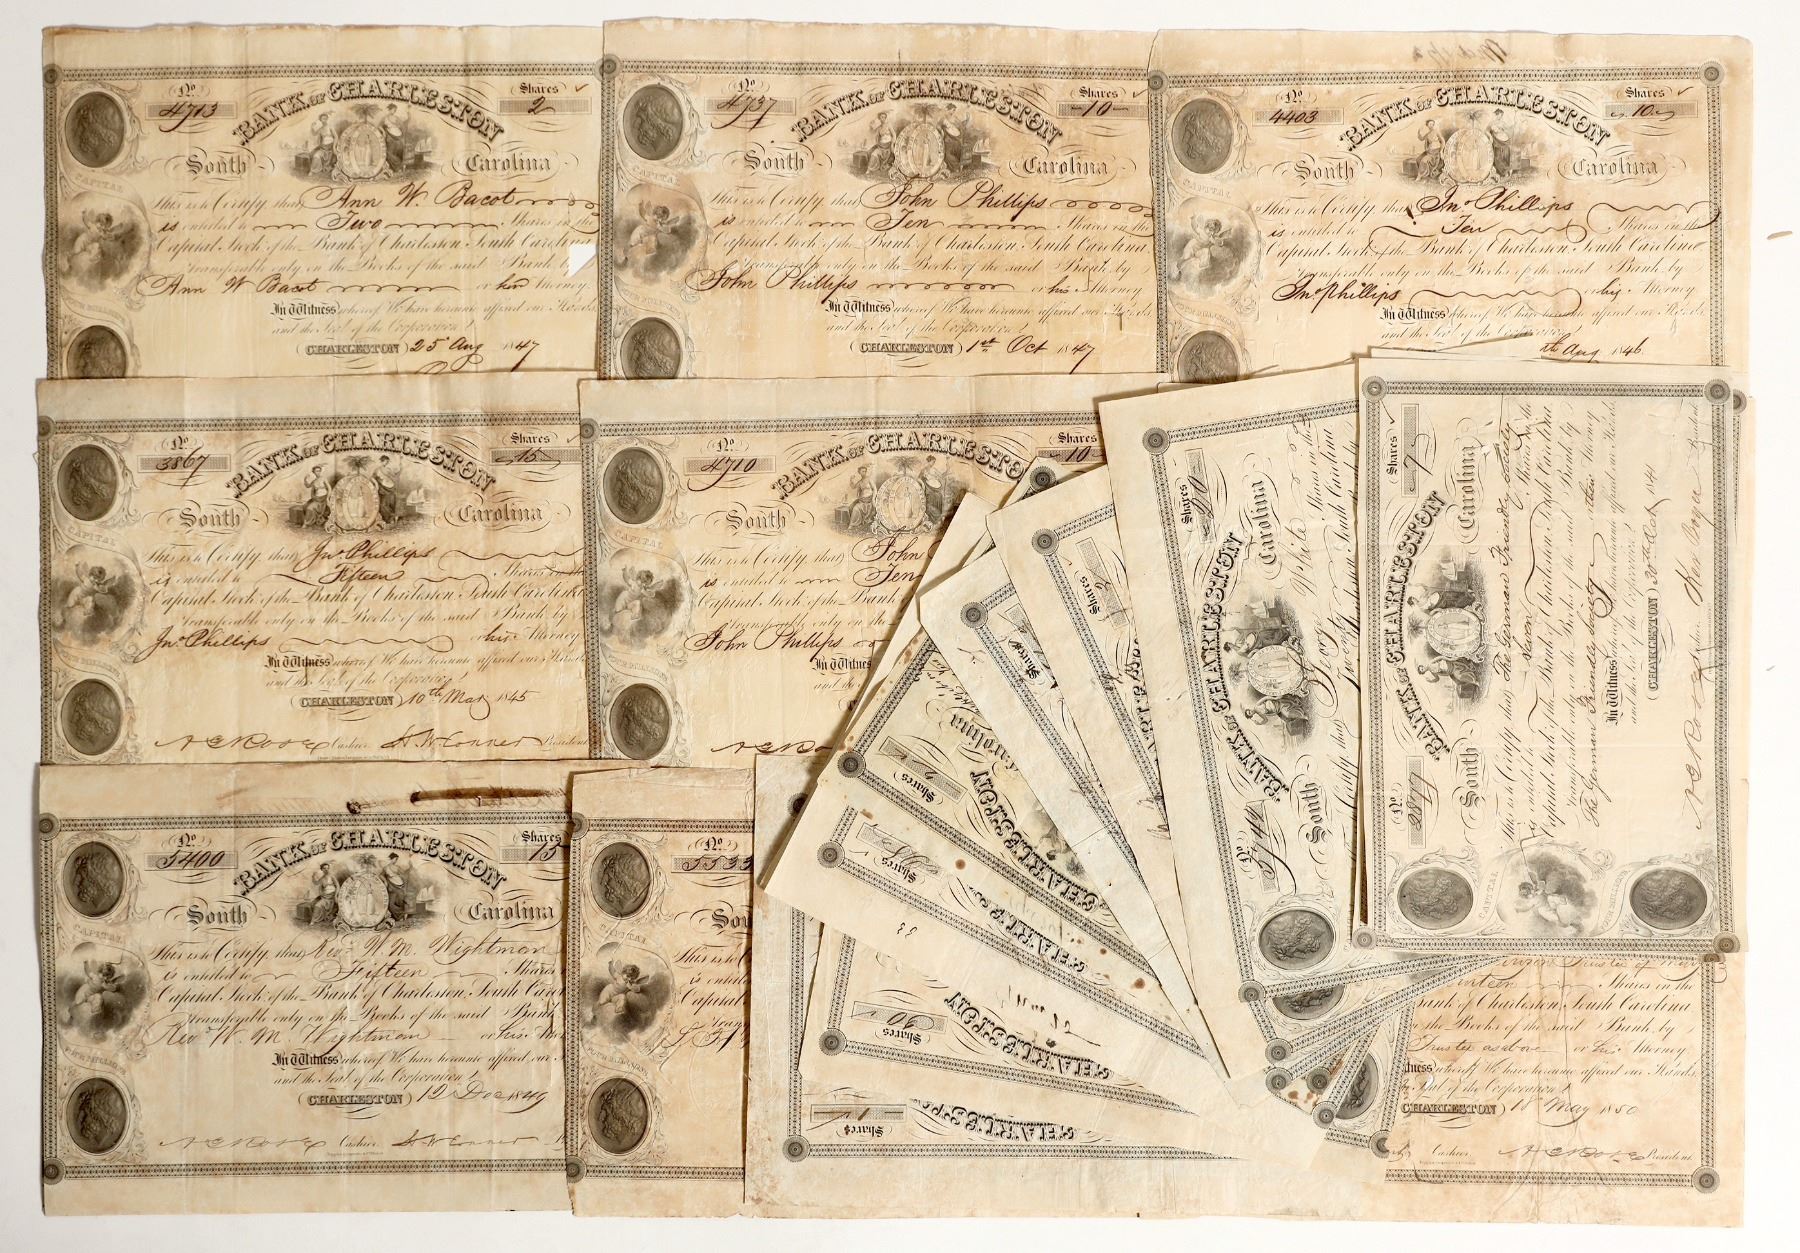 No
4713
Shares
2
BANK OF CHARLESTON
South Carolina
CAPITAL
This is to Certify that Ann W. Bacot
is entitled to Two Shares in the
Capital Stock of the Bank of Charleston South Carolina
transferable only on the Books of the said Bank by
Ann W Bacot or her Attorney
In Witness whereof We have hereunto affixed our Hands
and the Seal of the Corporation
CHARLESTON 25 Aug 1847
No
4737
Shares
10
BANK OF CHARLESTON
South Carolina
CAPITAL
This is to Certify that John Phillips
is entitled to Ten Shares in the
Capital Stock of the Bank of Charleston South Carolina
transferable only on the Books of the said Bank by
John Phillips or his Attorney
In Witness whereof We have hereunto affixed our Hands
and the Seal of the Corporation
CHARLESTON 1st Oct 1847
No
4403
Shares
10
BANK OF CHARLESTON
South Carolina
CAPITAL
FOUR MILLIONS
This is to Certify that Jno Phillips
is entitled to Ten Shares in the
Capital Stock of the Bank of Charleston South Carolina
transferable only on the Books of the said Bank by
Jno Phillips or his Attorney
In Witness whereof We have hereunto affixed our Hands
and the Seal of the Corporation
th Aug 1846
No
3867
Shares
15
BANK OF CHARLESTON
South Carolina
CAPITAL
FOUR MILLIONS
This is to Certify that Jno Phillips
is entitled to Fifteen Shares in the
Capital Stock of the Bank of Charleston South Carolina
transferable only on the Books of the said Bank by
Jno Phillips or his Attorney
In Witness whereof We have hereunto affixed our Hands
and the Seal of the Corporation
CHARLESTON 10th May 1845
Cashier H. W. Conner President
No
4710
Shares
10
BANK OF CHARLESTO
South
CAPITAL
FOUR MILLIONS
This is to Certify that John
is entitled to Ten
Capital Stock of the Bank
transferable only on the
John Phillips
In Witness
and the
CHARLESTON
No
5400
Shares
15
BANK OF CHARLESTON
South Carolina
CAPITAL
FOUR MILLIONS
This is to Certify that Rev. W. M. Wightman
is entitled to Fifteen Shares
Capital Stock of the Bank of Charleston South Carol
transferable only on the Books of the said Bank
Rev W. M. Wightman or his
In Witness whereof We have hereunto affixed our
and the Seal of the Corporation
CHARLESTON 12 Dec 1849
Cashier H. W. Conner
No
5533
Sou
CAPITAL
FOUR MILLIONS
This is to
is entitled
Capital
Shares
20
Carolina
CHARLESTON
Shares
CHARLES
Shares
90
CHARLESTON
Shares
1
CHARLES
Shares
Shares
No
3742
Shares
20
BANK OF CHARLESTON
South Carolina
Certify that Geo. White
Shares in the
Charleston South Carolina
No
2819
Shares
7
BANK OF CHARLESTON
South Carolina
CAPITAL
FOUR MILLIONS
This is to Certify that The German Friendly Society
is entitled to Seven Shares in the
Capital Stock of the Bank of Charleston South Carolina
transferable only on the Books of the said Bank by
The German Friendly Society or their Attorney
In Witness whereof We have hereunto affixed our Hands
and the Seal of the Corporation
CHARLESTON 30th Oct 1841
Cashier Ker Boyce President
Trustee of
Shares in the
Bank of Charleston South Carolina
the Books of the said Bank by
Trustee as above or his Attorney
whereof We have hereunto affixed our Hands
Seal of the Corporation
CHARLESTON 18 May 1850
Cashier President